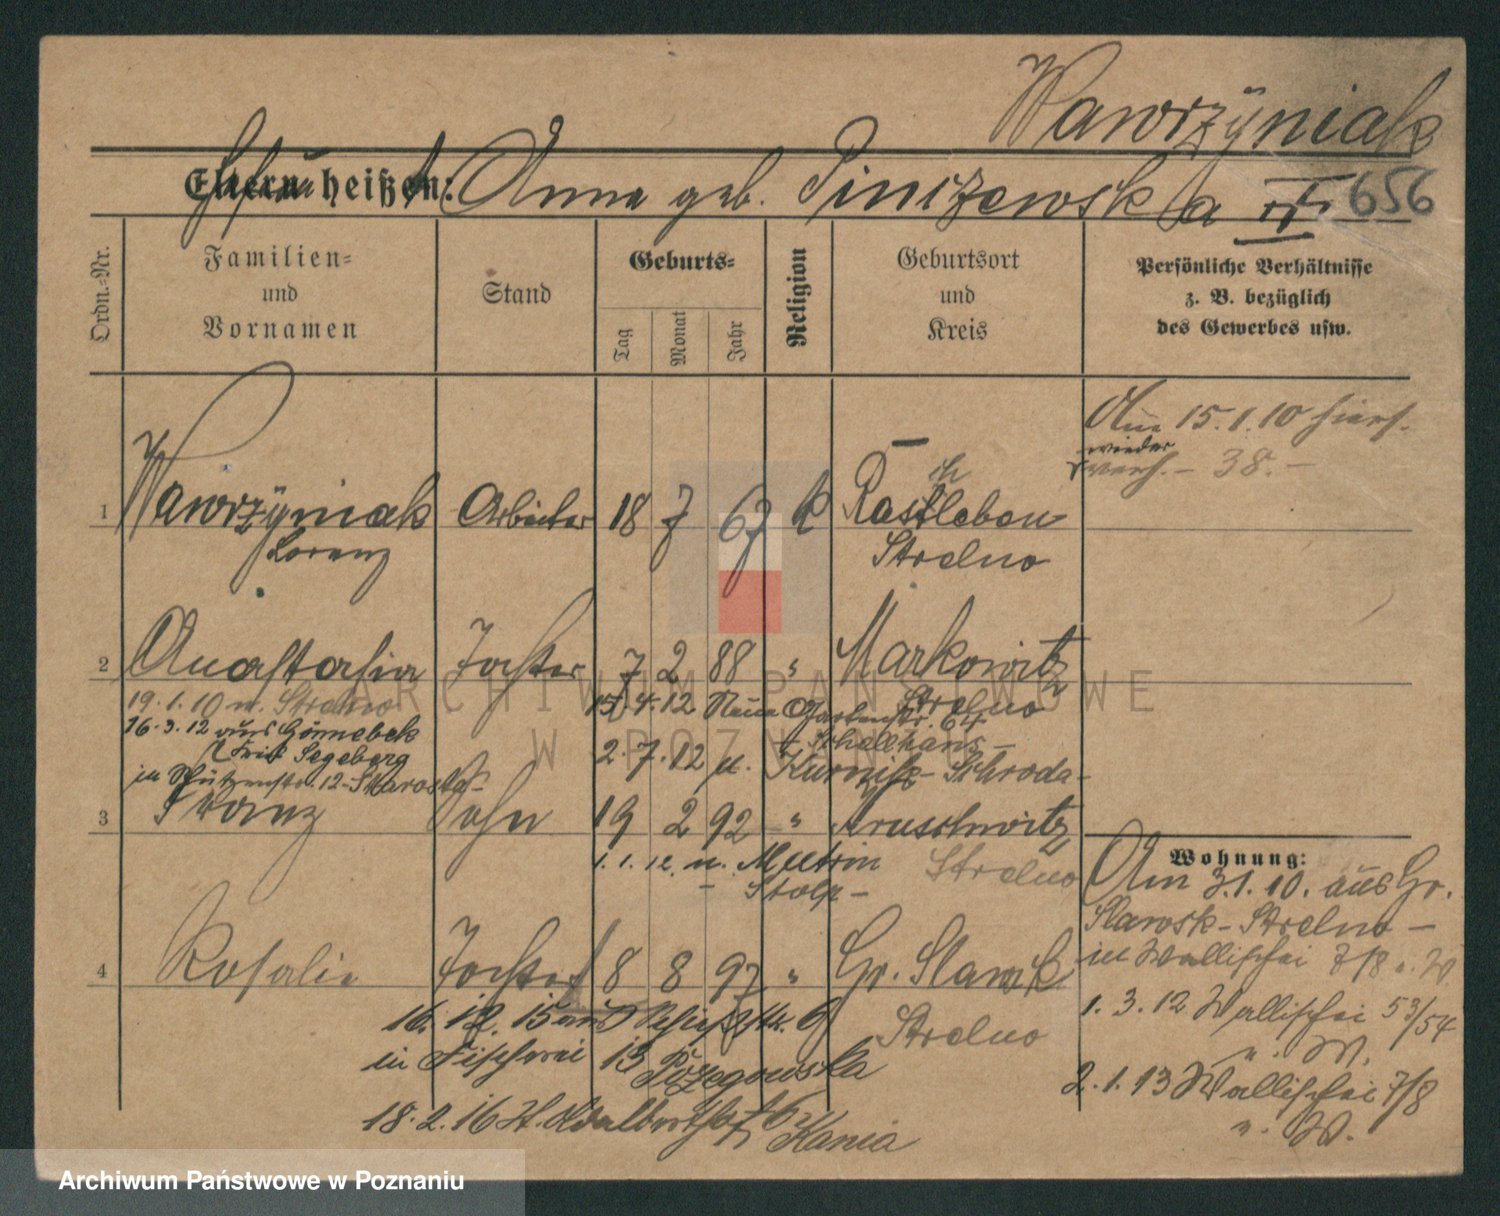 Wawrzÿniak
Eltern heißen:
Ehefrau Anna geb. Pinizewska IV 656
Ordn.-Nr.
Familien-
und
Vornamen
Stand
Geburts-
Tag
Monat
Jahr
Religion
Geburtsort
und
Kreis
Persönliche Verhältnisse
z. B. bezüglich
des Gewerbes usw.
Am 15.1.10 hiers.
wieder
verh. – 38. –
1 Wawrzÿniak Arbeiter 18 7 67 k
Lorenz
Strelno
2 Anastasia Tochter 7 2 88 " Markowitz
Strelno
19.1.10 n. Strelno
15.4.12 Neue Gartenstr. 64
16.3.12 aus Gönnebek
Schellhans –
Krei Segeberg
2.7.12 n. Kurnik – Schroda –
in Schützenstr. 12 – Starosta –
3 Franz Sohn 19 2 92 " Kruschwitz
Strelno
1.1.12 n. Muttrin
– Stolp –
4 Rosalie Tochter 8 8 97 " Gr. Slawsk
Strelno
16. 12. 15 aus Schießstr. 6
in Fischerei 13
18. 2. 16 St. Adalbertstr. 6
Kania
Wohnung:
Am 3.1.10. aus Gr.
Slawsk – Strelno –
in Wallischei 7/8 n. W.
1. 3. 12 Wallischei 53/54
n. W.
2. 1. 13 Wallischei 7/8
n. W.
ARCHIWUM PAŃSTWOWE
W POZNANIU
Archiwum Państwowe w Poznaniu